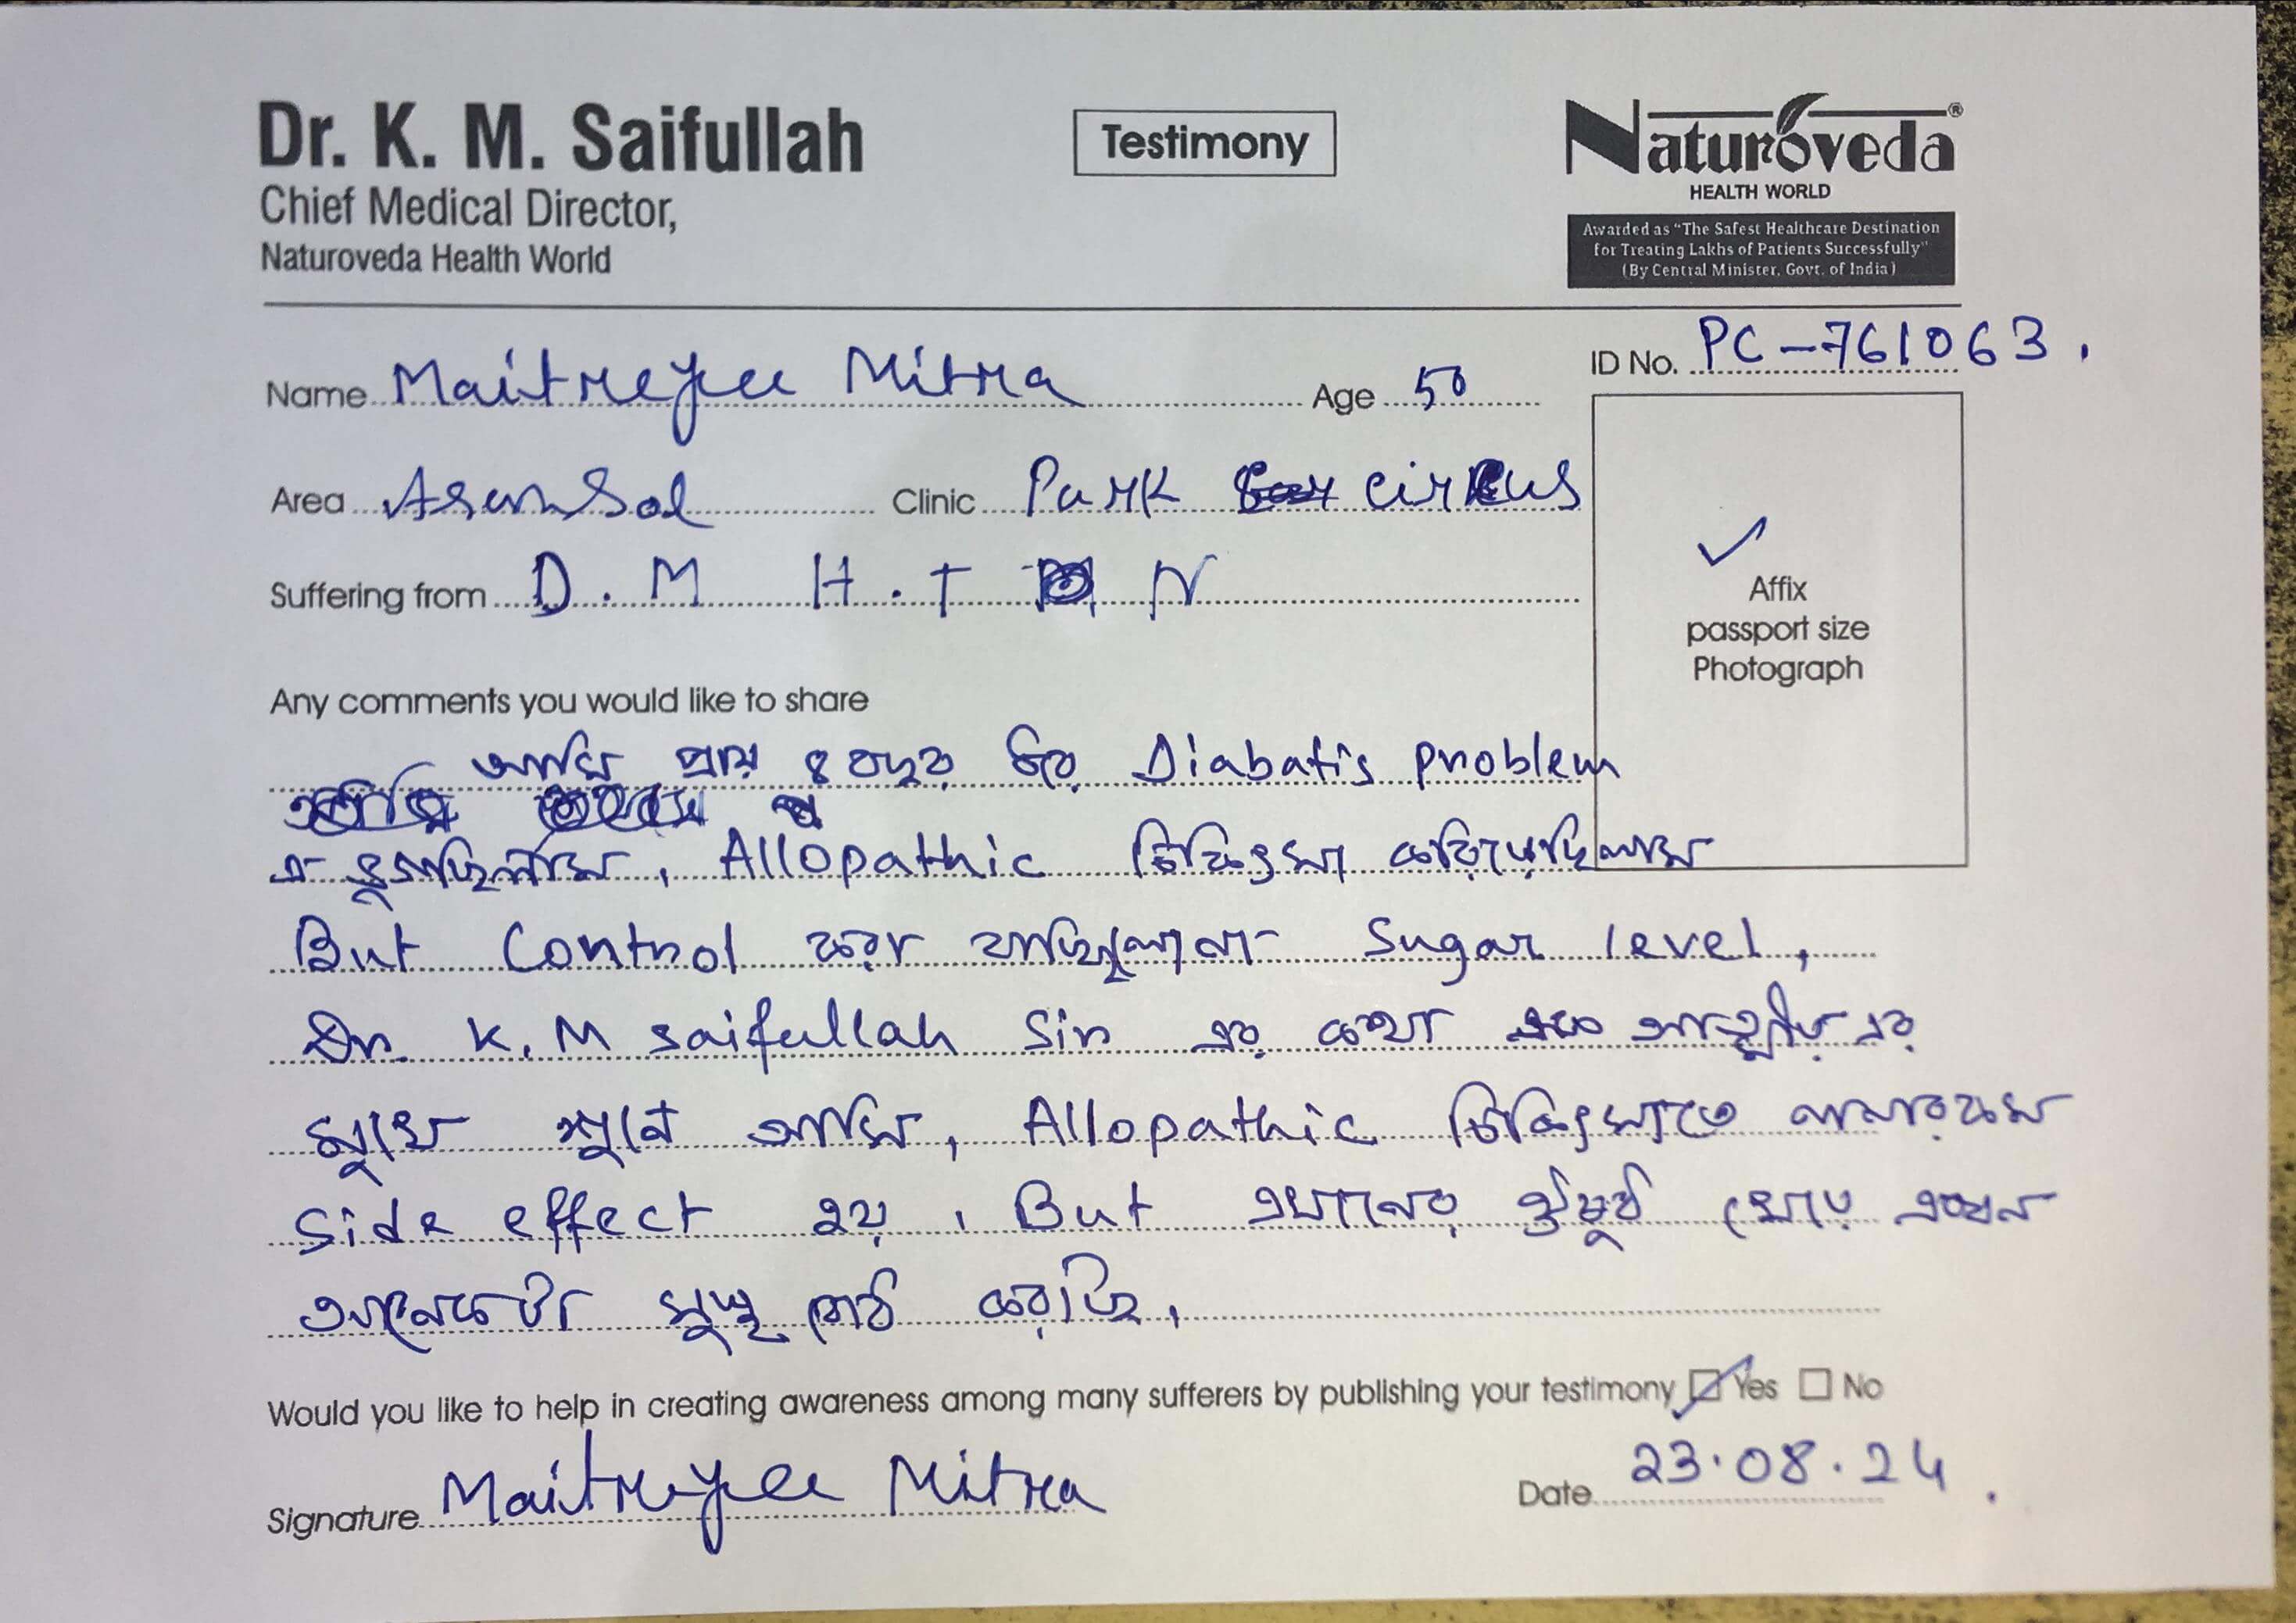 Dr. K. M. Saifullah
Chief Medical Director,
Naturoveda Health World
Testimony
Naturoveda®
HEALTH WORLD
Awarded as "The Safest Healthcare Destination
for Treating Lakhs of Patients Successfully"
(By Central Minister, Govt. of India)
ID No. PC-761063.
Name Maitreyee Mitra Age 50
Area Asansol Clinic Park circus
Suffering from D.M H.T N
Affix
passport size
Photograph
Any comments you would like to share
আমি প্রায় ৪ বছর ধরে Diabatis problem
এ ভুগছিলাম, Allopathic চিকিৎসা করিয়েছিলাম
But Control করা যাচ্ছিলোনা Sugar level,
Dr. K.M saifullah Sir এর কথা এক আত্মীয় এর
মুখে শুনে আসি, Allopathic চিকিৎসাতে নানারকম
Side effect হয়, But এখানের ঔষুধ খেয়ে এখন
অনেকটা সুস্থ বোধ করছি,
Would you like to help in creating awareness among many sufferers by publishing your testimony Yes No
Signature Maitreyee Mitra Date 23.08.24.